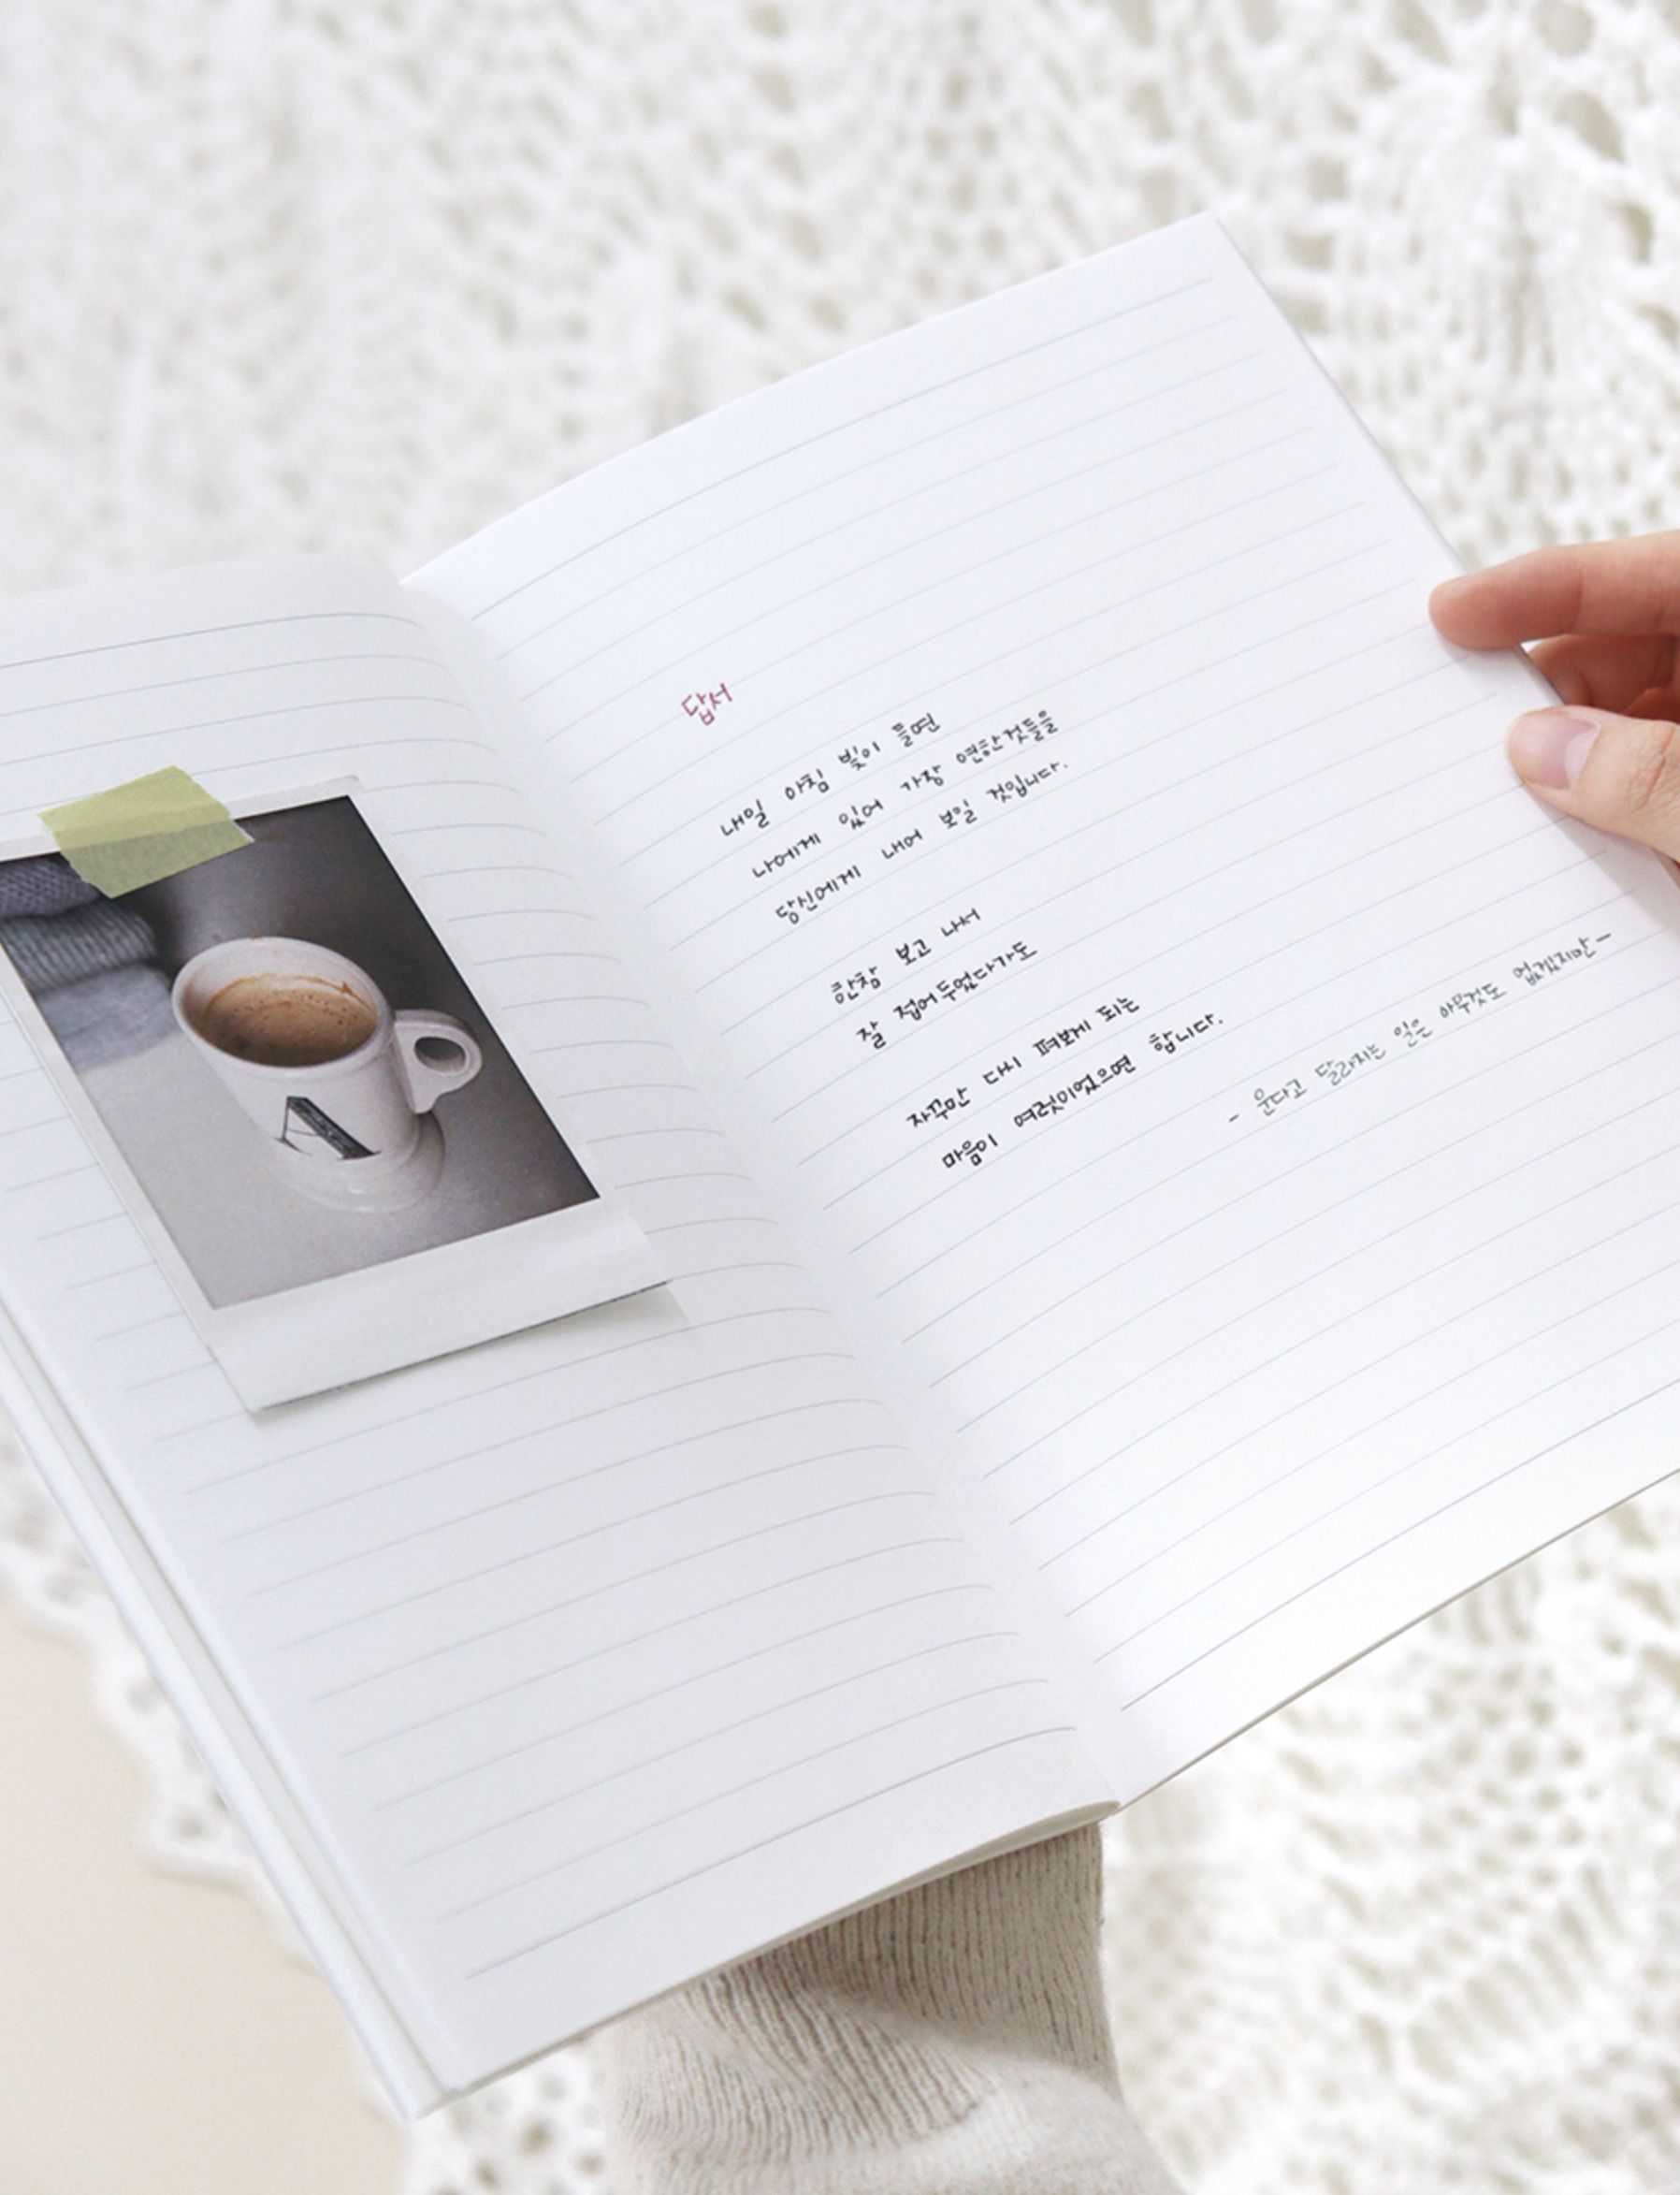 답서
내일 아침 빛이 들면
나에게 있어 가장 연한것들을
당신에게 내어 보일 것입니다.
한참 보고 나서
잘 접어두었다가도
자꾸만 다시 펴보게 되는
마음이 여럿이었으면 합니다.
- 운다고 달라지는 일은 아무것도 없겠지만-
A